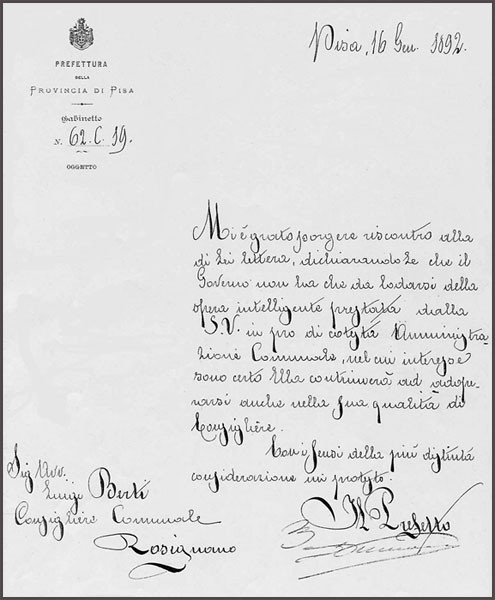 Pisa, 16 Gen. 1892.
PREFETTURA
DELLA
PROVINCIA DI PISA
Gabinetto
N. 62. C. 19.
OGGETTO
Mi è grato porgere riscontro alla
di Lei lettera, dichiarandole che il
Governo non ha che da lodarsi della
opera intelligente prestata dalla
S.V. in pro di cotesta Amministra-
zione Comunale, nel cui interesse
sono certo Ella continuerà ad adope-
rarsi anche nella sua qualità di
Consigliere.
Con i sensi della più distinta
considerazione mi protesto.
Il Prefetto
Sig Avv.
Luigi Berti
Consigliere Comunale
Rosignano